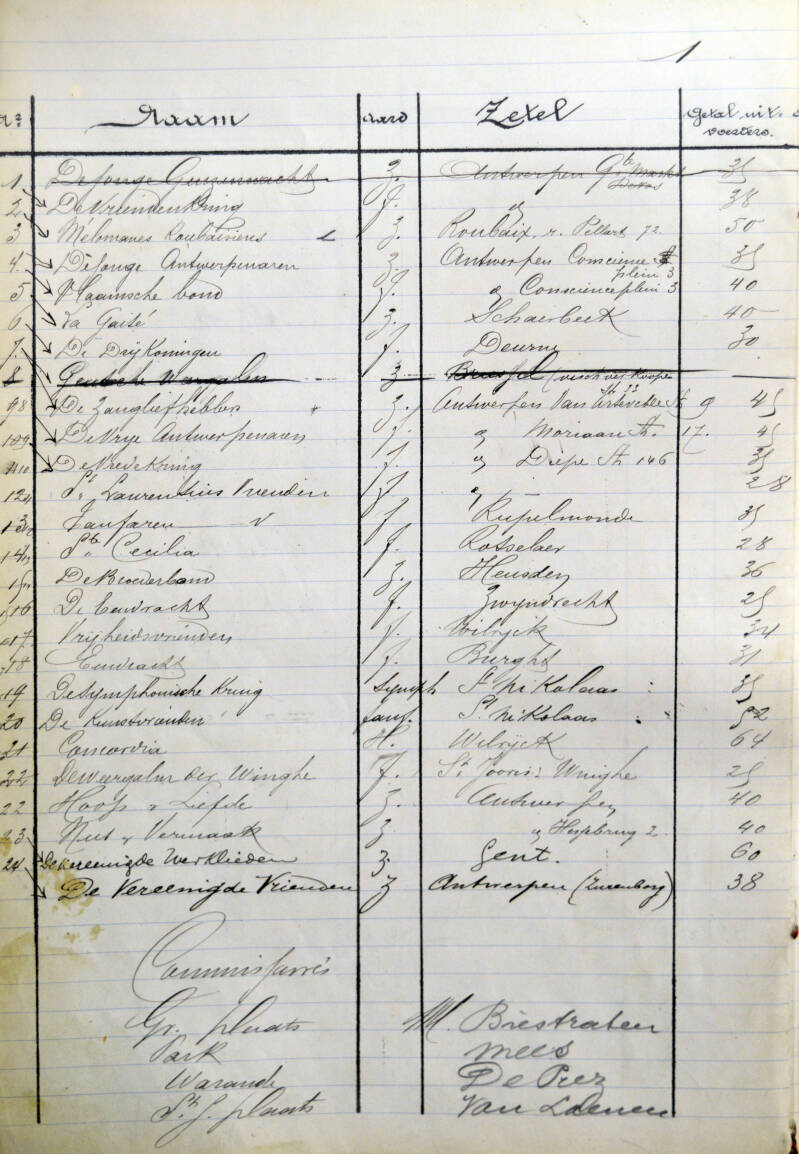 1
Nr Naam aard Zetel Getal uitvoerders.
1 De Jonge Geuzenwacht z. Antwerpen Gte Markt 35
2 De Vriendenkring f. " 38
3 Melomanes Roubaisiens z. Roubaix. r. Pellart 72 50
4. De Jonge Antwerpenaren z. Antwerpen Conscience plein 3 35
5 Vlaamsche bond f. " Conscienceplein 3 40
6 La Gaité z. Schaerbeek 40
7. De Drij Koningen f. Deurne 30
8 Gentsche z Brussel
98 De Zangliefhebbers z. Antwerpen Van Artevelde St 9 45
109 De Vrye Antwerpenaren f. " Moriaan St. 17. 45
1110 De Vredekring f. " Diepe St 146 35
12 St Laurentius Vrienden f " 28
13 Fanfaren f Rupelmonde 35
14 Ste Cecilia f. Rotselaer 28
15 De Broederbond z. Heusden 36
16 De Eendracht f. Zwyndrecht 25
17 Vrijheidsvrienden f. Wilryck 34
18 Eendracht f. Burght 31
19 De Symphonische Kring symph St Nikolaas 35
20 De Kunstvrienden fanf. St Nikolaas 52
21 Concordia H. Wilryck 64
22 De Weergalm der Winghe f. St Jooris Winghe 25
22 Hoop & Liefde z. Antwerpen 40
23 Nut & Vermaak z " 2 40
24 De Vereenigde Werklieden z. Gent. 60
De Vereenigde Vrienden z Antwerpen (Zurenborg) 38
Commissaris
Gr. plaats M. Biestraten
Park Mees
Warande De Prez
St J. plaats Van Loenen